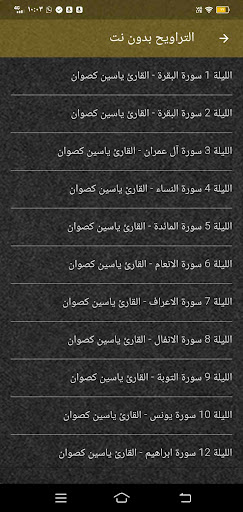 ١٠:٠٣
التراويح بدون نت
الليلة 1 سورة البقرة - القارئ ياسين كصوان
الليلة 2 سورة البقرة - القارئ ياسين كصوان
الليلة 3 سورة آل عمران - القارئ ياسين كصوان
الليلة 4 سورة النساء - القارئ ياسين كصوان
الليلة 5 سورة المائدة - القارئ ياسين كصوان
الليلة 6 سورة الانعام - القارئ ياسين كصوان
الليلة 7 سورة الاعراف - القارئ ياسين كصوان
الليلة 8 سورة الانفال - القارئ ياسين كصوان
الليلة 9 سورة التوبة - القارئ ياسين كصوان
الليلة 10 سورة يونس - القارئ ياسين كصوان
الليلة 12 سورة ابراهيم - القارئ ياسين كصوان